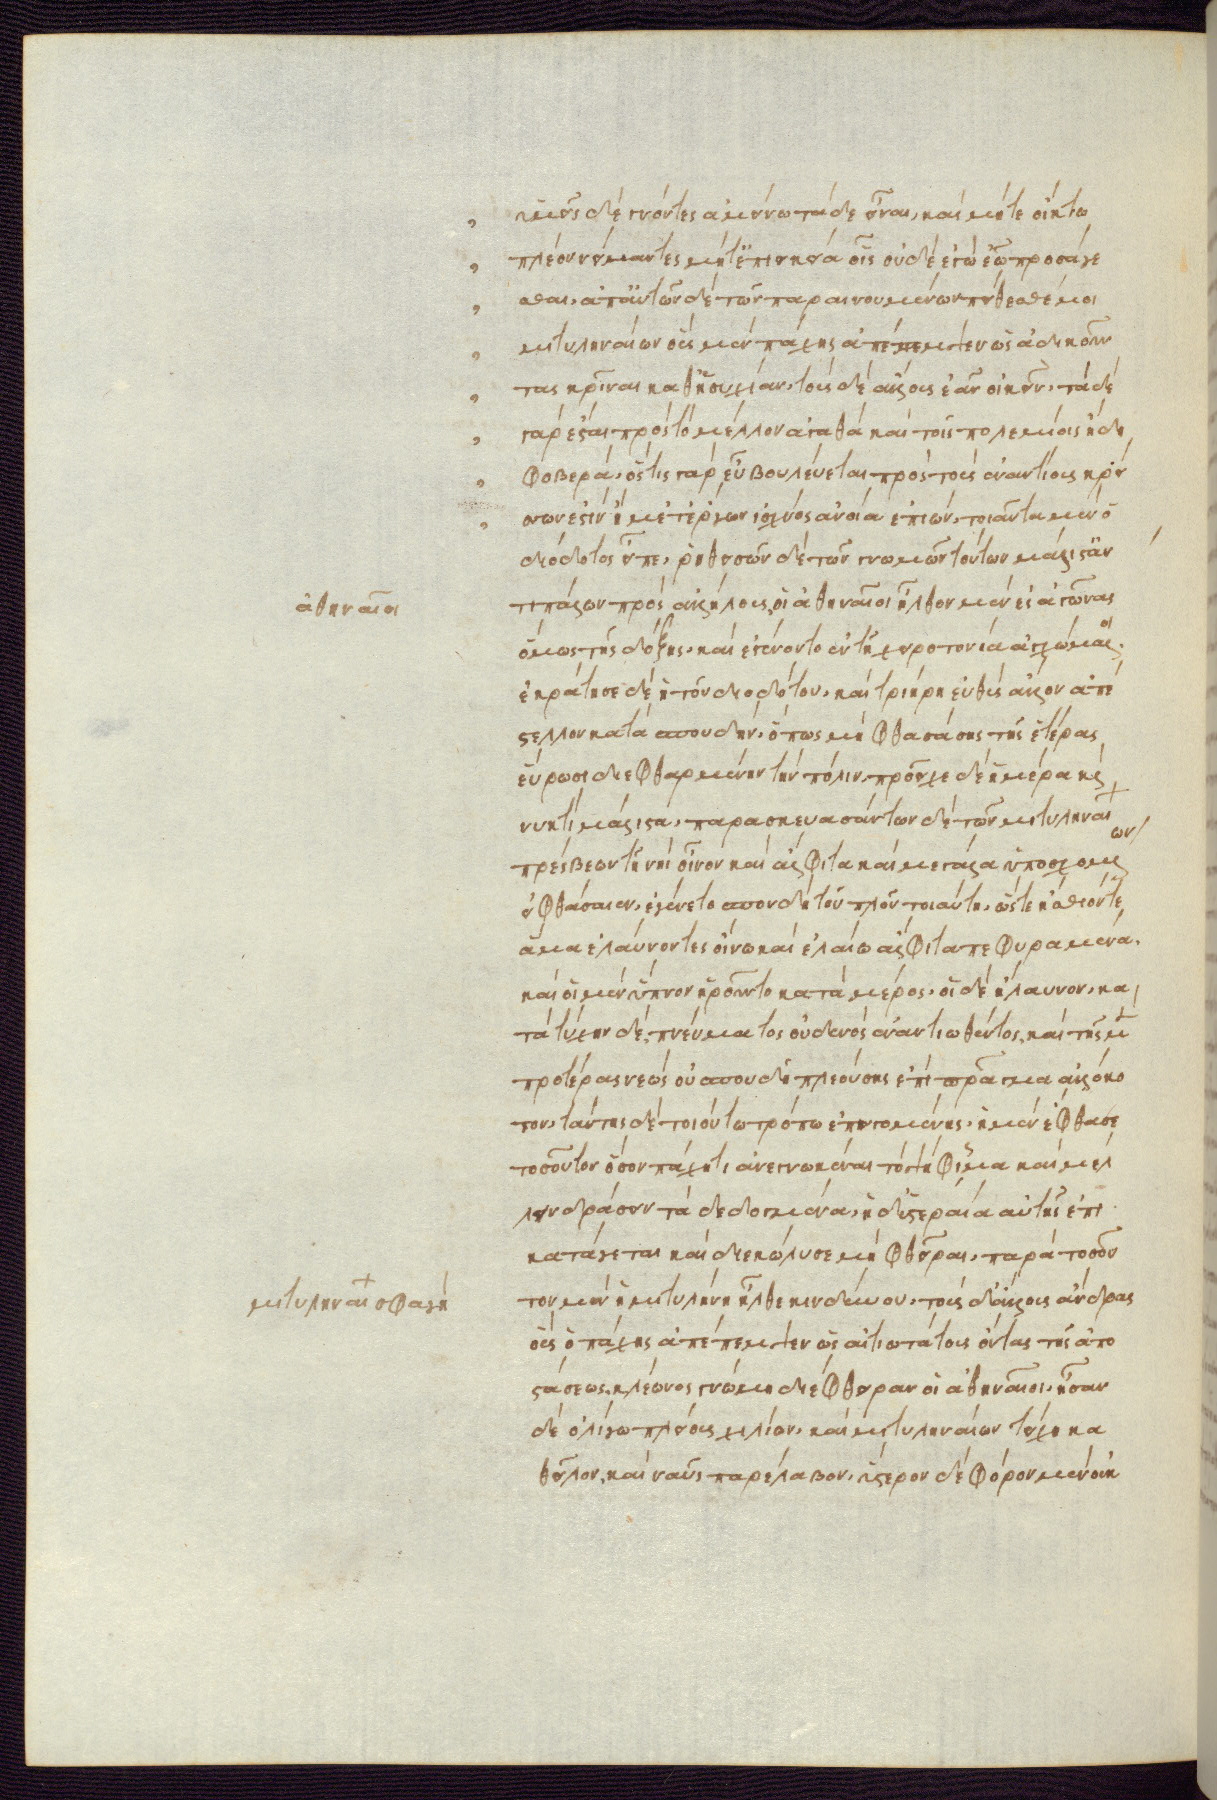 ὑμεῖς δὲ γνόντες ἀμείνω τάδε εἶναι, καὶ μήτε οἴκτω
πλέον νείμαντες μήτ' ἐπιεικεία οἷς οὐδὲ ἐγὼ ἐῶ προσάγε
σθαι, ἀπ' αὐτῶν δὲ τῶν παραινουμένων πείθεσθέ μοι
μιτυληναίων οὓς μὲν πάχης ἀπέπεμψεν ὡς ἀδικοῦν
τας κρῖναι καθ' ἡσυχίαν, τοὺς δὲ ἄλλους ἐᾶν οἰκεῖν, τάδε
γὰρ ἔς τε τὸ μέλλον ἀγαθὰ καὶ τοῖς πολεμίοις ἤδη
φοβερά, ὅστις γὰρ εὖ βουλεύεται πρὸς τοὺς ἐναντίους κρεί
σσων ἐστὶν ἢ μετ' ἔργων ἰσχύος ἀνοία ἐπιών, τοιαῦτα μὲν ὁ
διόδοτος εἶπε, ῥηθεισῶν δὲ τῶν γνωμῶν τούτων μάλιστα ἀν
τιπάλων πρὸς ἀλλήλους, οἱ ἀθηναῖοι ἦλθον μὲν ἐς ἀγῶνα
ὅμως τῆς δόξης, καὶ ἐγένοντο ἐν τῇ χειροτονία ἀγχώμαλοι
ἐκράτησε δὲ ἡ τοῦ διοδότου, καὶ τριήρη εὐθὺς ἄλλην ἀπέ
στελλον κατὰ σπουδήν, ὅπως μὴ φθασάσης τῆς ἑτέρας
εὕρωσι διεφθαρμένην τὴν πόλιν, προεῖχε δὲ ἡμέρα καὶ
νυκτὶ μάλιστα, παρασκευασάντων δὲ τῶν μιτυληναί
ων
πρέσβεων τῇ νηὶ οἶνον καὶ ἄλφιτα καὶ μεγάλα ὑποσχομένων
εἰ φθάσαιεν, ἐγένετο σπουδὴ τοῦ πλοῦ τοιαύτη, ὥστε ἤσθιόν τε
ἅμα ἐλαύνοντες οἴνω καὶ ἐλαίω ἄλφιτα πεφυραμένα,
καὶ οἱ μὲν ὕπνον ἡροῦντο κατὰ μέρος, οἱ δὲ ἤλαυνον, κα
τὰ τύχην δὲ πνεύματος οὐδενὸς ἐναντιωθέντος, καὶ τῆς μὲν
προτέρας νεὼς οὐ σπουδῇ πλεούσης ἐπὶ πρᾶγμα ἀλλόκο
τον, ταύτης δὲ τοιούτω τρόπω ἐπειγομένης, ἡ μὲν ἔφθασε
τοσοῦτον ὅσον πάχητι ἀνεγνωκέναι τὸ ψήφισμα καὶ μέλ
λειν δράσειν τὰ δεδογμένα, ἡ δ' ὑστεραία αὐτῆς ἐπι
κατάγεται καὶ διεκώλυσε μὴ φθεῖραι, παρὰ τοσοῦ
τον μὲν ἡ μιτυλήνη ἦλθε κινδύνου, τοὺς δ' ἄλλους ἄνδρας
οὓς ὁ πάχης ἀπέπεμψεν ὡς αἰτιωτάτους ὄντας τῆς ἀπο
στάσεως, κλέωνος γνώμη διέφθειραν οἱ ἀθηναῖοι, ἦσαν
δὲ ὀλίγω πλείους χιλίων, καὶ μιτυληναίων τείχη κα
θεῖλον, καὶ ναῦς παρέλαβον, ὕστερον δὲ φόρον μὲν οὐκ
ἀθηναῖοι
μιτυληναί σφαγή